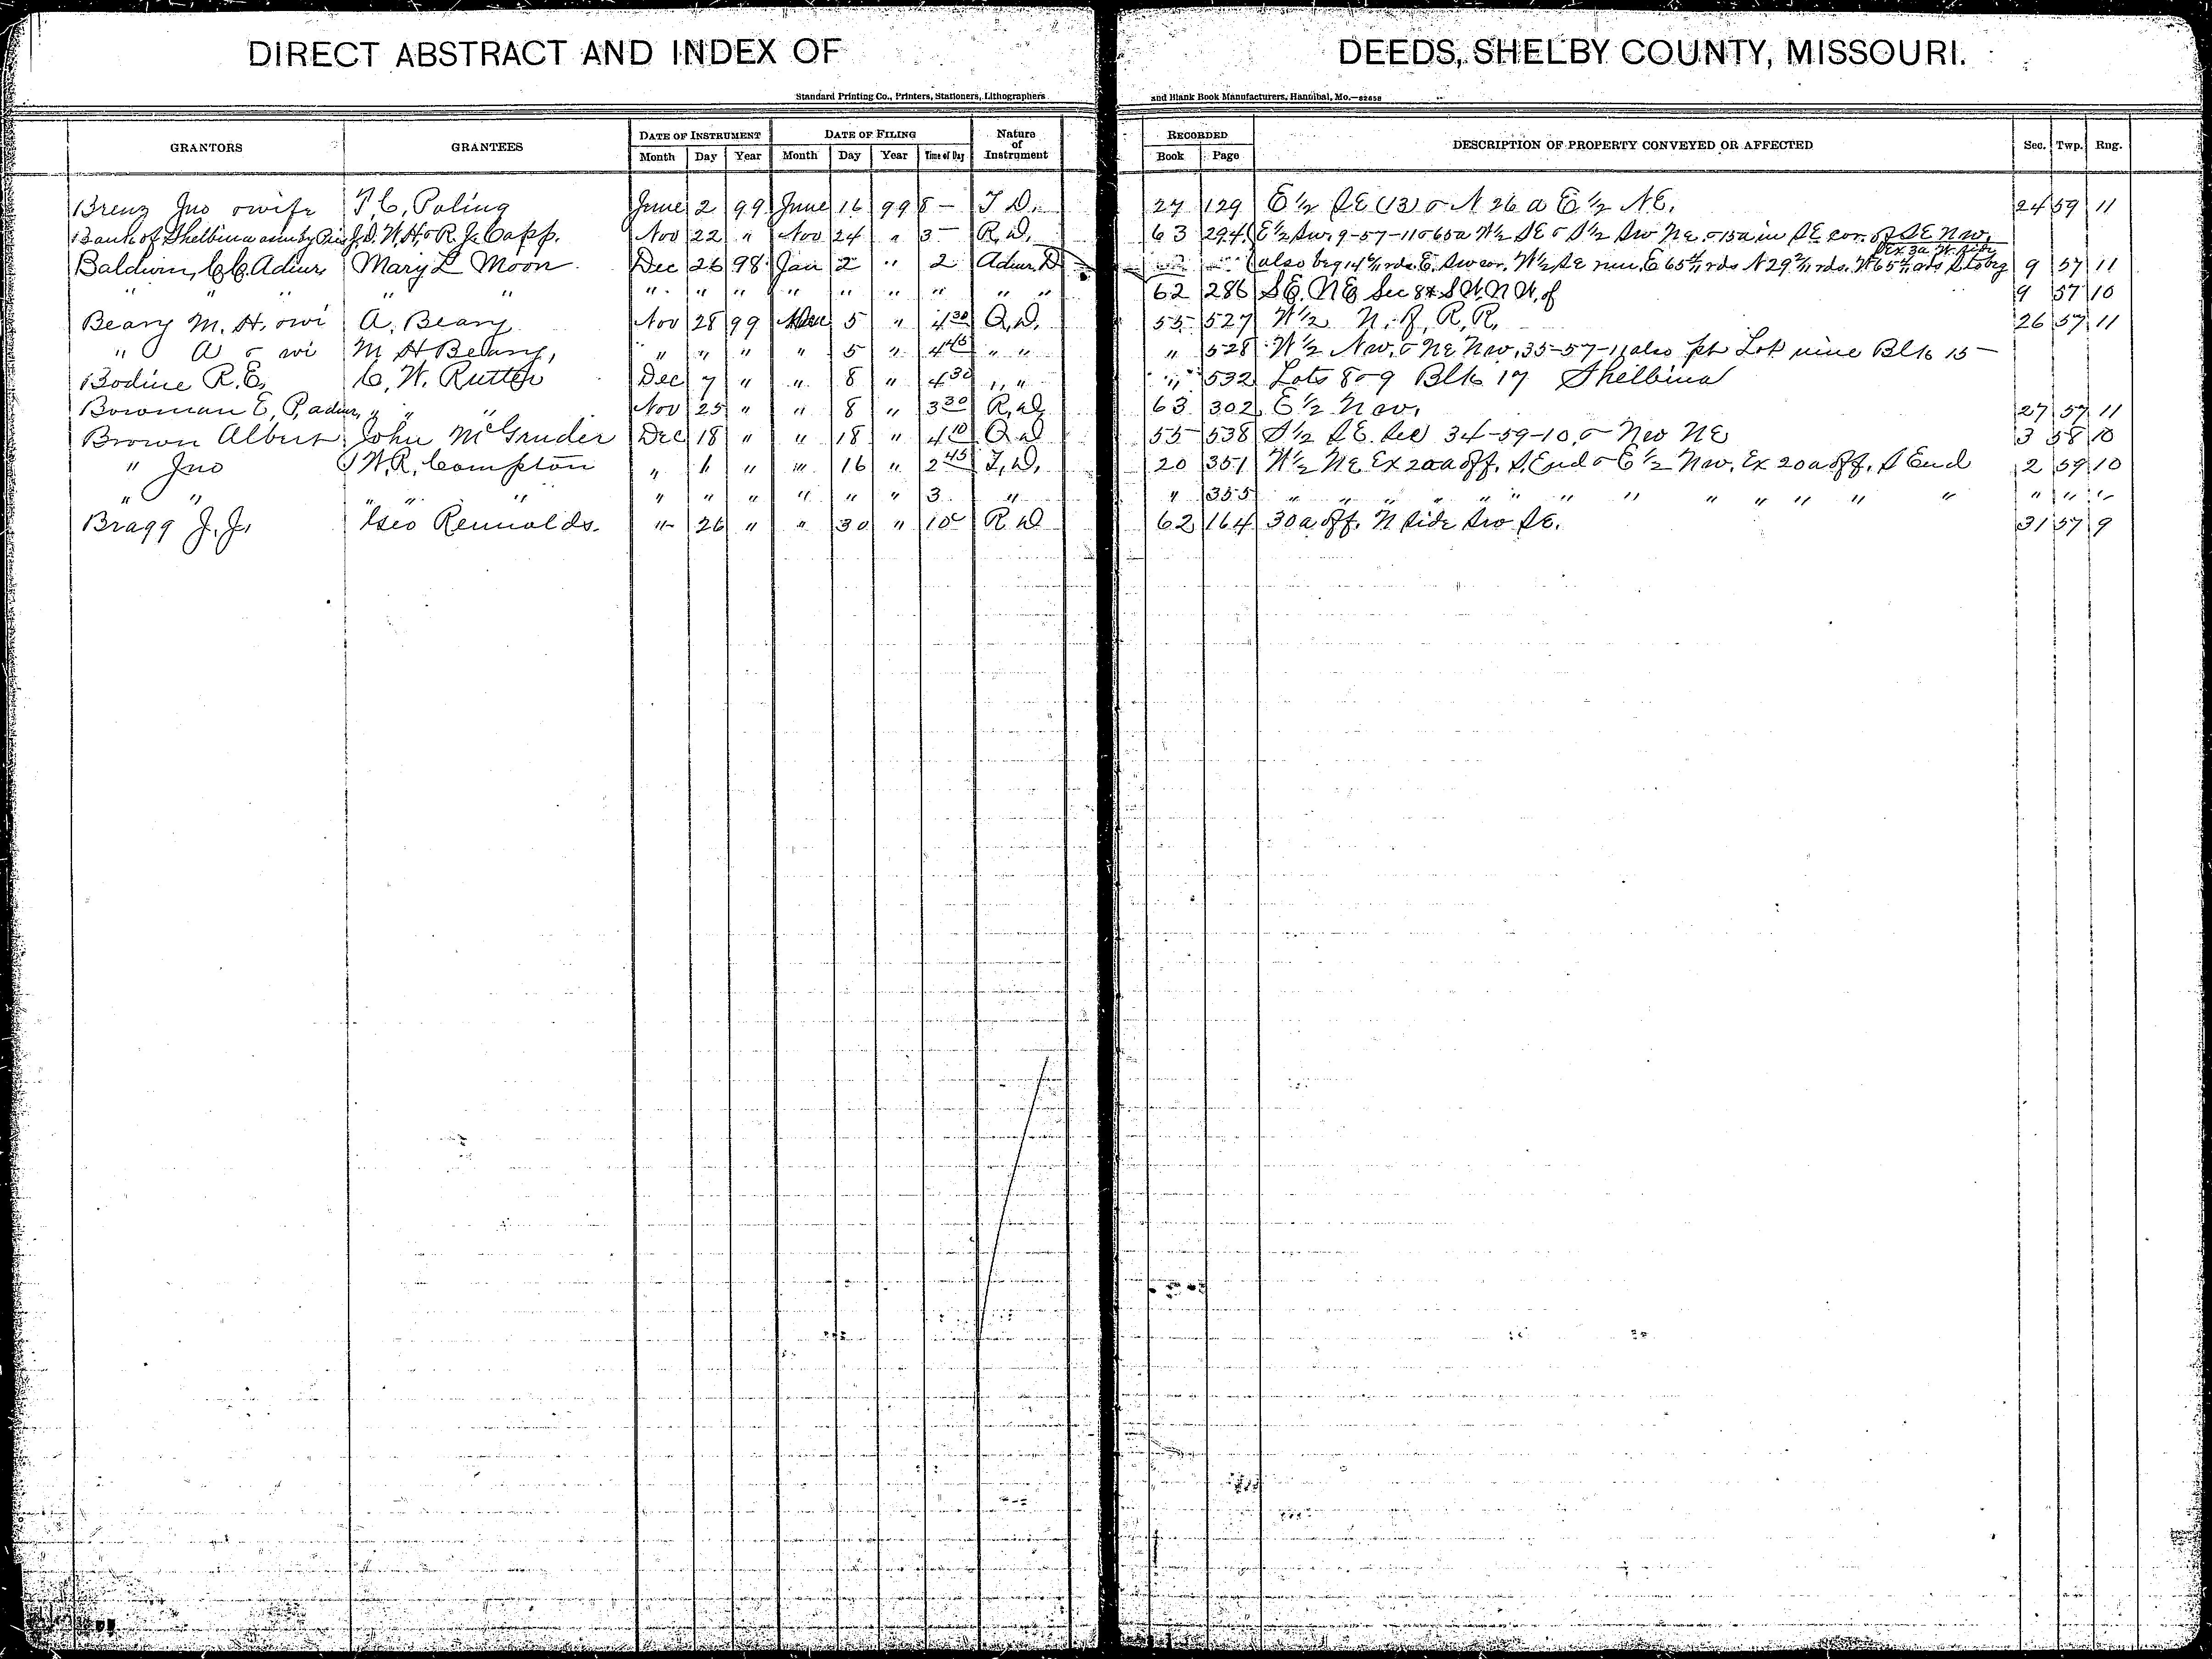 DIRECT ABSTRACT AND INDEX OF DEEDS, SHELBY COUNTY, MISSOURI.
Standard Printing Co., Printers, Stationers, Lithographers and Blank Book Manufacturers, Hannibal, Mo.—82858
GRANTORS GRANTEES DATE OF INSTRUMENT DATE OF FILING Nature of Instrument RECORDED DESCRIPTION OF PROPERTY CONVEYED OR AFFECTED Sec. Twp. Rng.
Month Day Year Month Day Year Time of Day Book Page
Brenz Jno & wife T. C. Poling June 2 99 June 16 99 8 — T D. 27 129 E ½ SE (13) & N 26 a E ½ NE. 24 59 11
Bank of Shelbina J. D. W. H. & R. J. Capp. Nov 22 " Nov 24 " 3 — R. D. 63 294 E ½ Sw. 9-57-11 & 60a W ½ SE & S ½ Sw Ne & 15a in SE cor. of SE Nw.
Ex 3a W. Side
Baldwin, C. C. Admr. Mary L Moon Dec 26 98 Jan 2 " 2 Admr. D (also beg 14 rds. E. Sw cor. W ½ Se run. E 65 rds N 29 rds. W 65 rds S to beg 9 57 11
" " " " " " " " " " " " " " " 62 286 SE. NE Sec 8 & SW. NW. of 9 57 10
Beary M. H. & wi A. Beary Nov 28 99 Dec 5 " 4 30 Q. D. 55 527 W ½ N. of R. R. 26 57 11
" A & wi M H Beary, " " " " 5 " 4 45 " " " 528 W ½ Nw. & NE Nw. 35-57-11 also pt Lot nine Blk 15 —
Bodine R. E. C. W. Rutter Dec 7 " " 8 " 4 30 " " " 532 Lots 8 & 9 Blk 17 Shelbina
Bowman E. P. admr. " " " Nov 25 " " 8 " 3 30 R. D 63 302 E ½ Nw. 27 57 11
Brown Albert John McGruder Dec 18 " " 18 " 4 10 Q D 55 538 S ½ SE. Sec 34-59-10, & Nw NE 3 58 10
" Jno W. R. Compton " 1 " " 16 " 2 45 T. D. 20 351 W ½ NE Ex 20a off. S. End & E ½ Nw. Ex 20a off. S End 2 59 10
" " " " " " " " " " " 3 " " 355 " " " " " " " " " " " " " " " "
Bragg J. J. Geo Reinolds. " 26 " " 30 " 10 R D 62 164 30a off. N Side Sw SE. 31 57 9